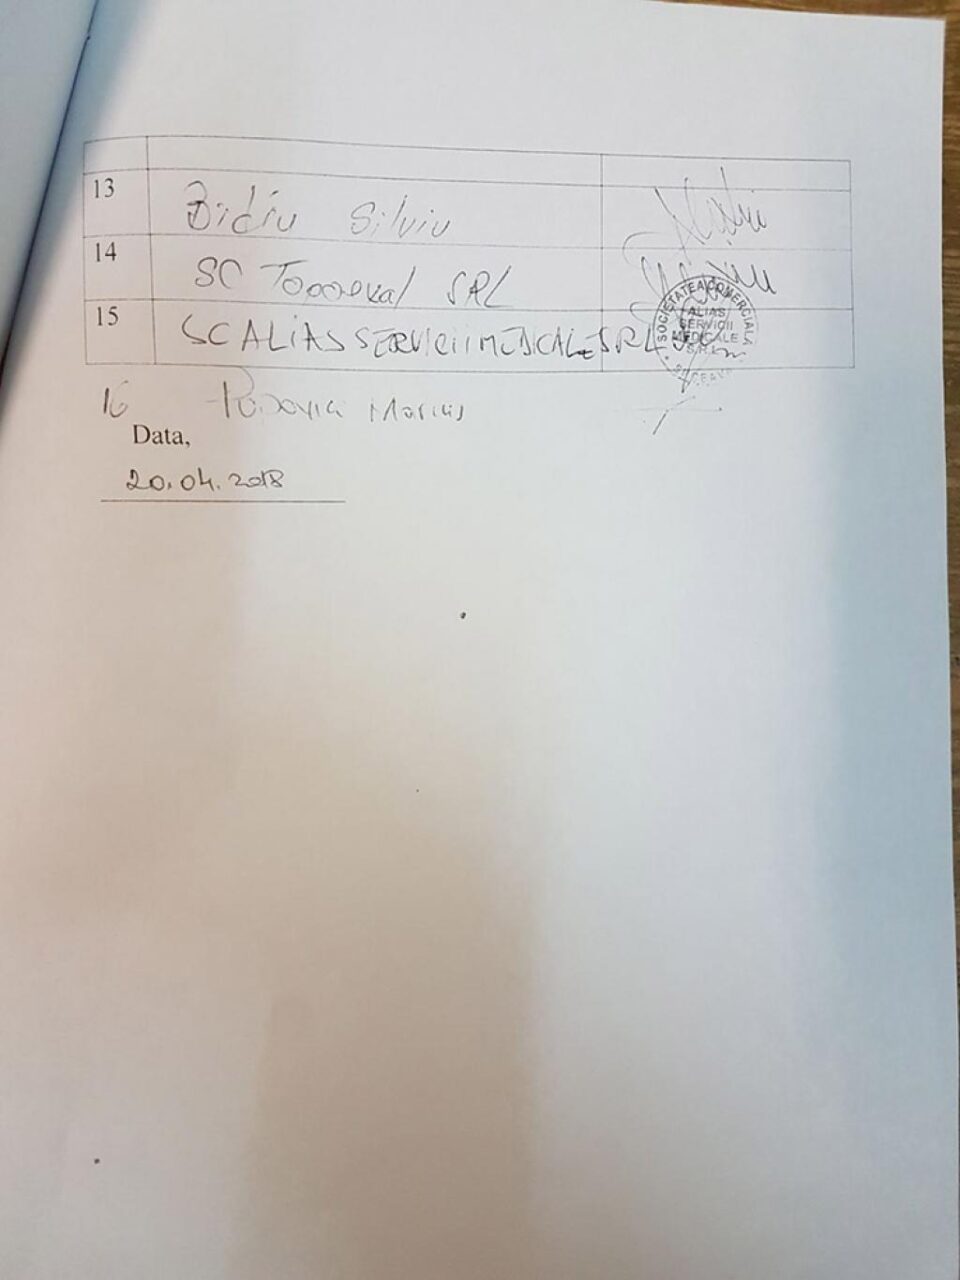 13 Silviu
14 SC SRL
15 SC ALIAS SERVICII MEDICALE SRL
SOCIETATEA COMERCIALĂ
ALIAS
SERVICII
MEDICALE
S.R.L.
SUCEAVA
16 Marius
Data,
20.04.2018